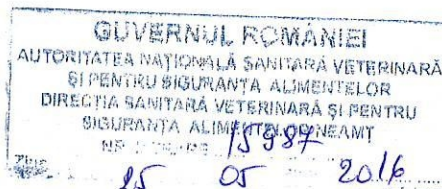 GUVERNUL ROMÂNIEI
AUTORITATEA NAȚIONALĂ SANITARĂ VETERINARĂ
ȘI PENTRU SIGURANȚA ALIMENTELOR
DIRECȚIA SANITARĂ VETERINARĂ ȘI PENTRU
SIGURANȚA ALIMENTELOR NEAMȚ
15987
Ziua 05 2016